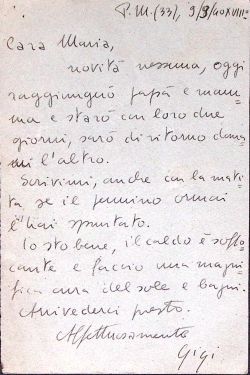 P.M. (33), 9/9/40 XVIII=
Cara Maria,
novità nessuna, oggi
raggiungerò papà e mam-
ma e starò con loro due
giorni, sarò di ritorno doma-
ni l'altro.
Scrivimi, anche con la mati-
ta se il pennino ormai
l'hai spuntato.
Io sto bene, il caldo è soffo-
cante e faccio una magni-
fica cura del sole e bagni.
Arrivederci presto.
Affettuosamente
Gigi